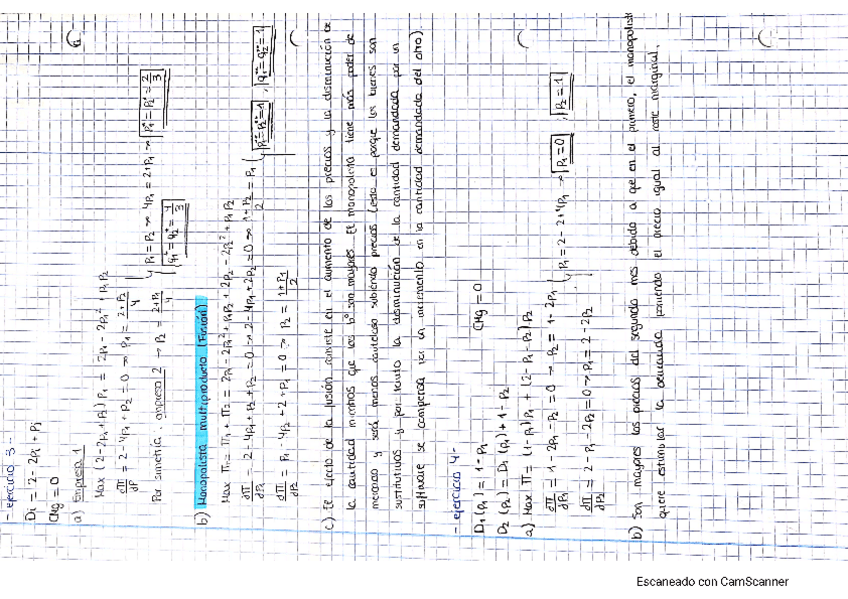 - ejercicio 3 -
Di = 2 - 2pi + pj
CMg = 0
a) Empresa 1
Max (2-2p₁+p₂) p₁ = 2p₁ - 2p₁² + p₁p₂
dπ/dp = 2 - 4p₁ + p₂ = 0 → p₁ = (2+p₂)/4
Por simetría, empresa 2 → p₂ = (2+p₁)/4
p₁ = p₂ → 4p₁ = 2+p₁ → p₁* = p₂* = 2/3
b) Monopolista multiproducto (Fusión)
Max π = π₁ + π₂ = 2p₁ - 2p₁² + p₁p₂ + 2p₂ - 2p₂² + p₁p₂
dπ/dp₁ = 2 - 4p₁ + p₂ + p₂ = 0 → 2 - 4p₁ + 2p₂ = 0 →
dπ/dp₂ = p₁ - 4p₂ + 2 + p₁ = 0 → p₂ = (1+p₁)/2
p₁** = p₂** = 1, q₁** = q₂** = 1
c) El efecto de la fusión consiste en el aumento de los precios y la disminución de
la cantidad mientras que los bº son mayores. El monopolista tiene más poder de
mercado y será menos cauteloso subiendo precios (esto es porque los bienes son
sustitutivos y por tanto la disminución de la cantidad demandada por un
software se compensa con un incremento en la cantidad demandada del otro).
- ejercicio 4 -
D₁(p₁) = 1 - p₁
D₂(p₂) = D₁(p₁) + 1 - p₂
CMg = 0
a) Max π = (1-p₁)p₁ + (2-p₁-p₂)p₂
dπ/dp₁ = 1 - 2p₁ - p₂ = 0 → p₂ = 1 - 2p₁
dπ/dp₂ = 2 - p₁ - 2p₂ = 0 → p₁ = 2 - 2p₂
p₁ = 2 - 2 + 4p₁ → p₁ = 0, p₂ = 1
b) Son mayores los precios del segundo mes debido a que en el primero, el monopolista
quiere estimular la demanda poniendo el precio igual al coste marginal.
Escaneado con CamScanner